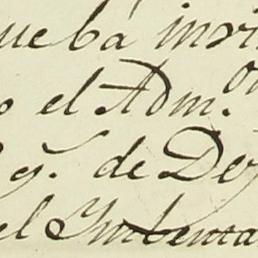 ueba invi
o el Adm.or
q.e de De
el Imbenta